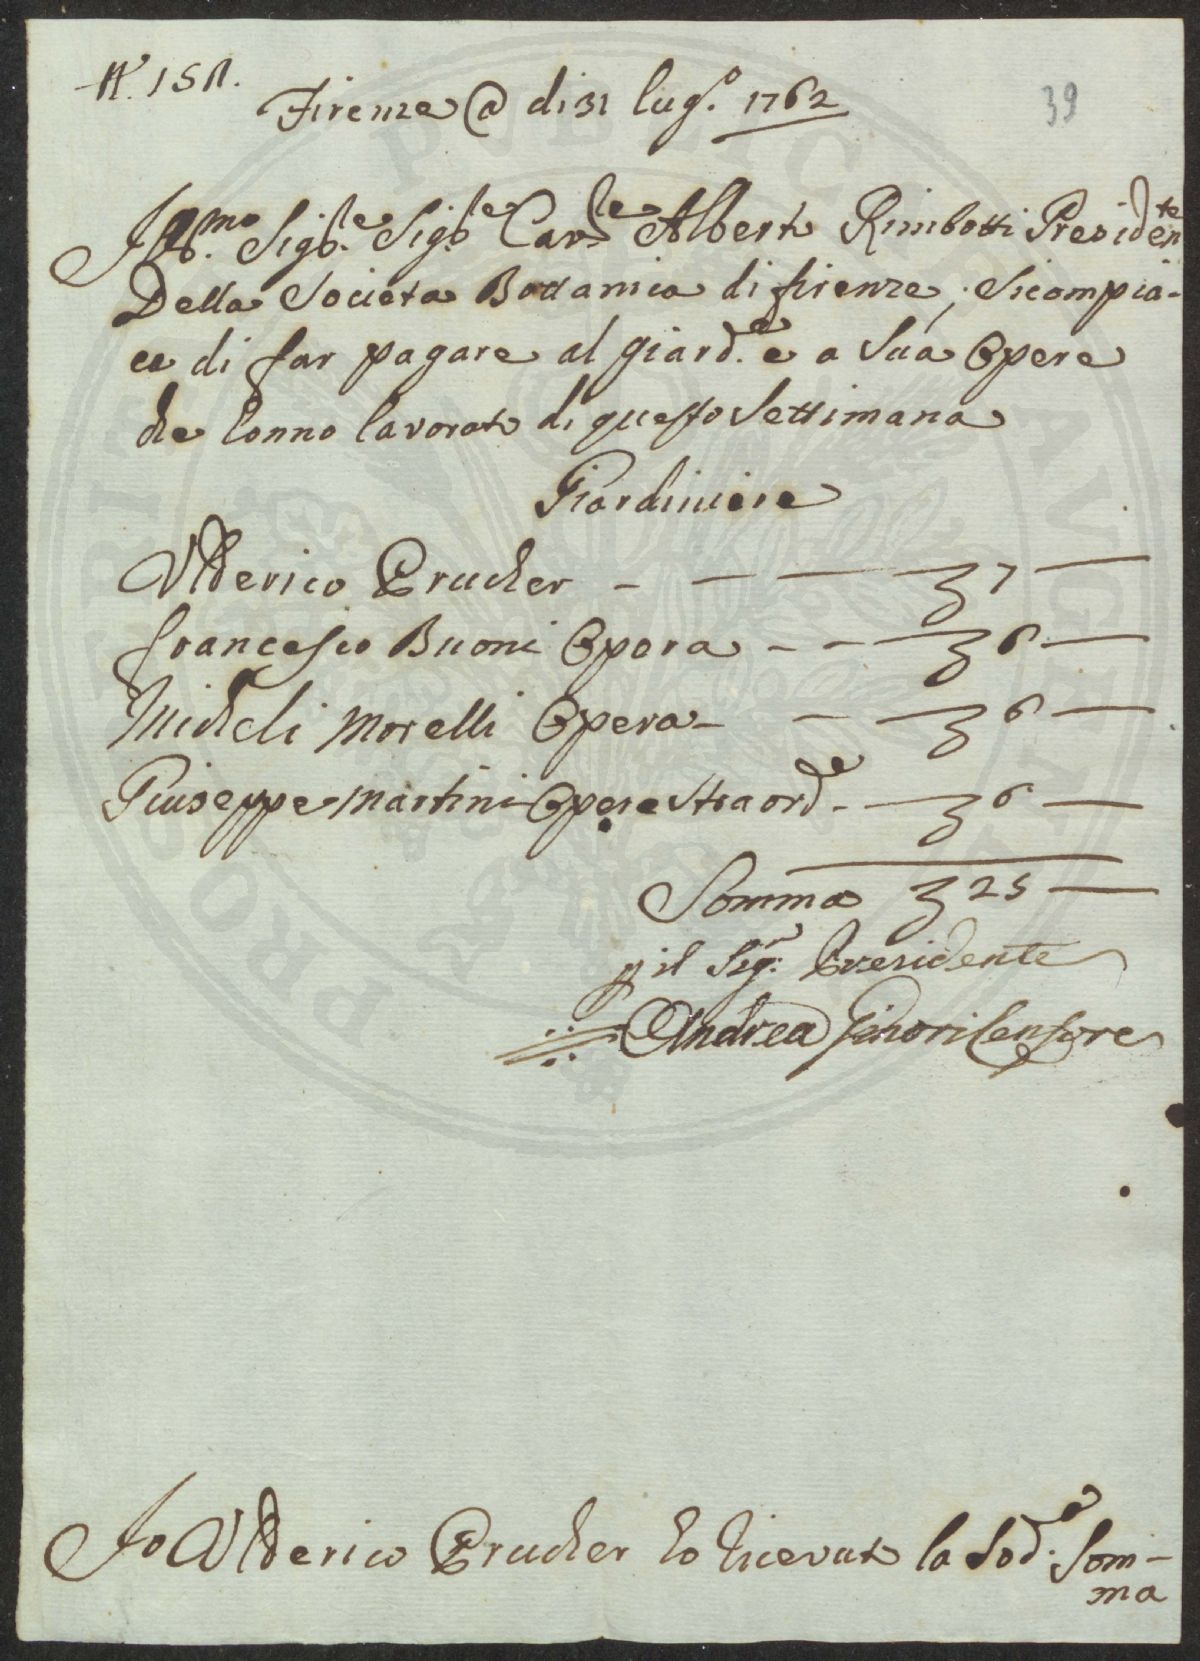 N.° 151.
39
Firenze @ di 31 lug.° 1762
Ill.mo Sig.re Sig.re Cav.re Alberto Rimbotti Presidente
Della Societa Bottanica di firenze, Sicompia-
ce di far pagare al giard.e e a Sua Opere
che Ponno lavorato di questo Settimana
Giardiniere
Ulderico Prucher - - - 7 -
francesco Buoni Opera - - 6 -
Micheli Morelli Opera - - 6 -
Giuseppe Martini Opere Straord.e - 6 -
Somma 25 -
p il Sig.r Presidente
Andrea Ginori Censore
Io Ulderico Prucher ho Ricevuto la Sod.a Som-
ma